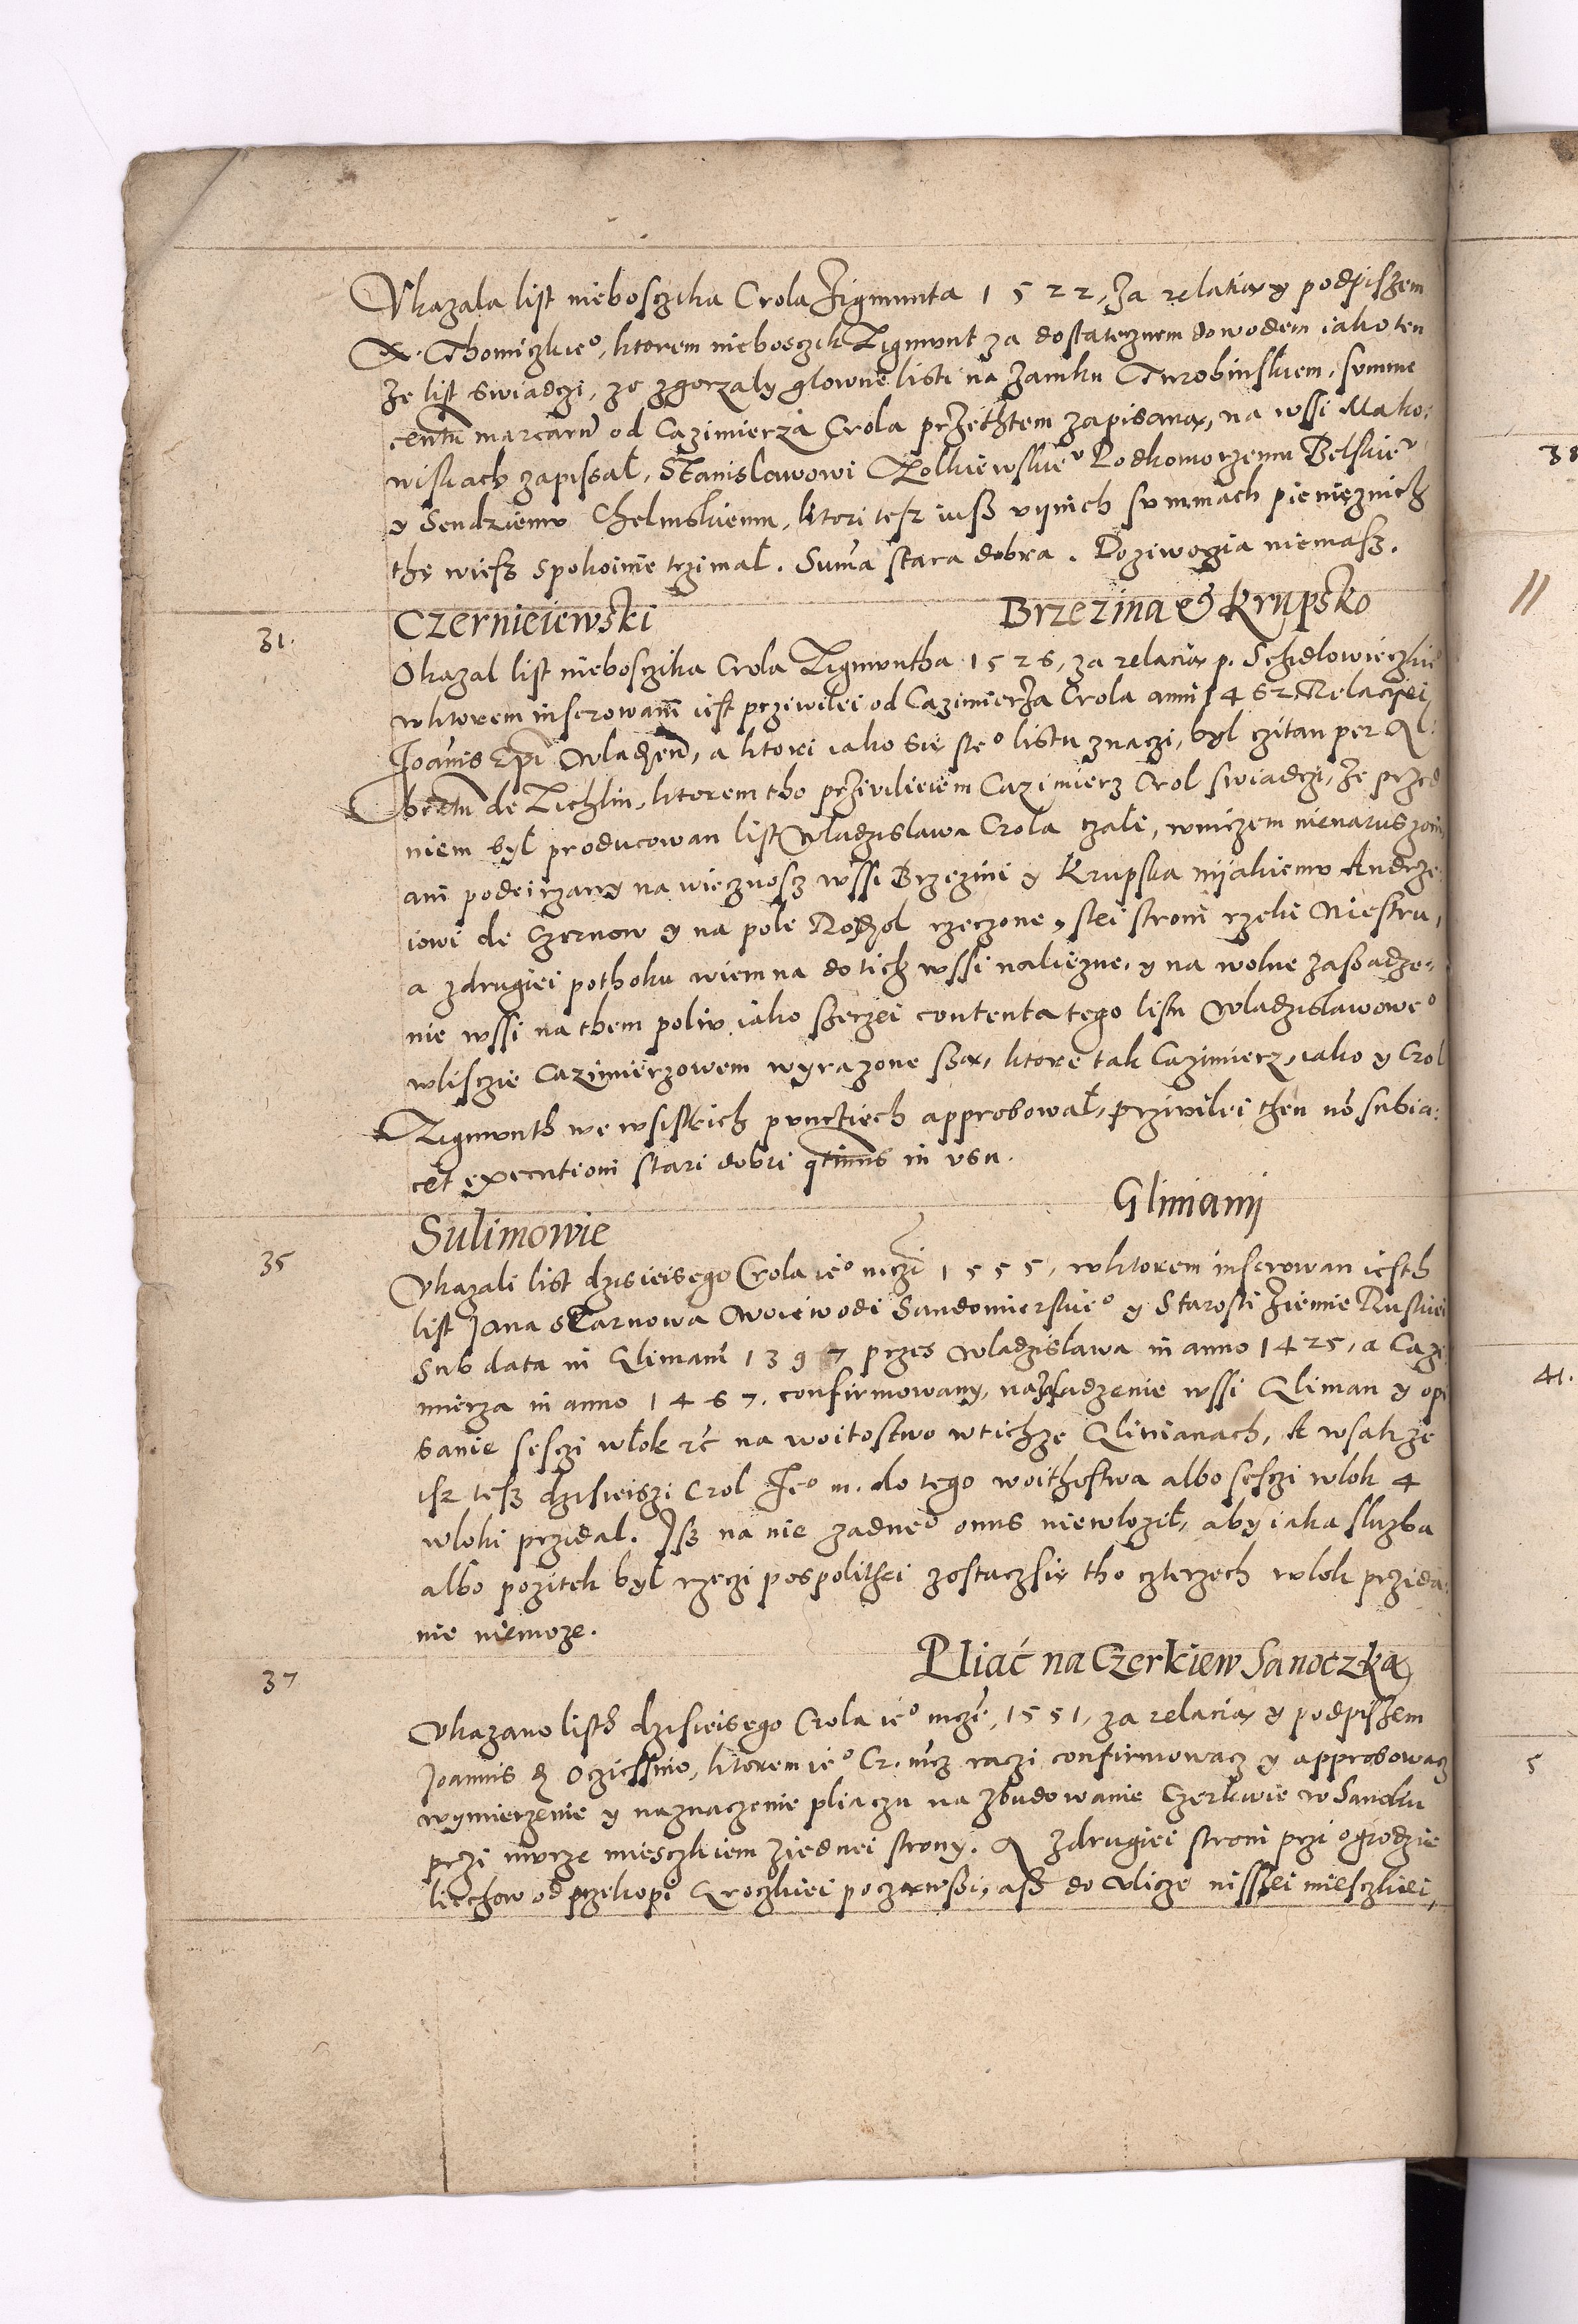 Ukazala list niebosczika Crola Zigmunta 1522, za relatią y podpiszem
X. Thomiczkie°, ktorem niebosczik Zigmunt za dostatecznem dowodem iako ten
że list swiadczi, ze zgorzaly glowne listi na zamku Turobinskiem, summę
centū marcarū od Cazimierza Crola przethtem zapisaną, na wssi Mako:
wiskach zapissał, Stanislawowi Zolkiewskie° Podkomorzemu Belskie°
y Sendziemv Chelmskiemu, ktori tesz iusz vynich summach pienięznich
thę wiesz spokoinie trzimał. Suma stara dobra. Doziwozia niemasz.
31. Czerniewski Brzezina & Krupsko
Okazal list niebosczika Crola Zigmuntha 1526, za relacią p. Schidlowieczkie°
wktorem inserowanī iest prziwilei od Cazimierza Crola anni 1462 Relaciei
Joānis Epī Wladzen̄, a ktori iako się ste° listu znaczi, był czitan per Al:
bertū de Zichlin, ktorem tho prziwilieiem Cazimierz Crol swiadczi, że przed
niem był producowan list Wladzislawa Crola czałi, wniczem nienaruszoni
ani podeirzany na wiecznosz wssi Brzezini y Krupska nijakiemv Andrze:
iowi de Czernow y na pole Rozdol rzeczone, stei stroni rzeki Niestru,
a zdrugiei pothoku wiemna do tich wssi należne, y na wolne zasadze:
nie wssi na them poliv iako szerzei contenta tego listu Wladzislawowe°
wlisczie Cazimierzowem wyrazone są, ktore tak Cazimierz, iako y Crol
Zigmunth we wsistkich punctiech approbował, prziwilei then nō subia:
cet executioni stari dobri qtinus in usu.
35 Sulimowie Gliniani
Ukazali list dzisieisego Crola ie° mczi 1555, wktorem inserowan iesth
list Jana sTarnowa Woiewodi Sandomierskie° y Starosti Ziemie Ruskiei
sub data in Glinianī 1397 przes Wladzislawa in anno 1425, a Cazi
mierza in anno 1467. confirmowany, na zasadzenie wssi Glinian y opi
sanie sesczi włok rć na woitostwo wtichże Glinianach, A wsakże
isz tesz dzisieiszi Crol Je° m. do tego woithostwa albo sesczi wlok 4
wloki przidal. Isz na nie zadne° onus niewłożił, aby iaka sluzba
albo pozitek był rzeczi pospolithei zostaczsię tho czterzech wlok przida:
nie niemoze.
37 Pliac na Czerkiew Sanoczką
Ukazano listh dzisieisego Crola ie° mczi, 1551, za relacią y podpiszem
Joannis d Oczieszino, ktorem ie° Cr. mcz raczi confirmowacz y approbowacz
wymierzenie y naznaczenie pliaczu na zbudowanie Czerkwie w Sanoku
przi murze miesczkiem ziednei strony. A zdrugiei stroni przi ogrodzie
liechow od przekopi Groczkiei począwszi, asz do vlicze nisszei miesczkiei,
38
11
41.
5